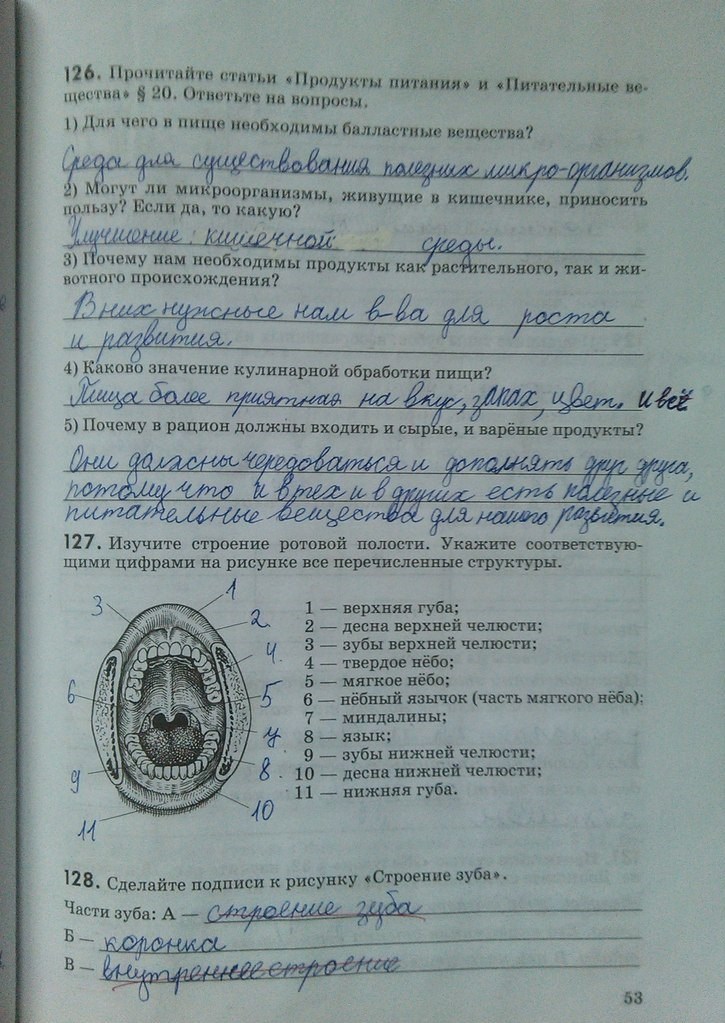 126. Прочитайте статьи «Продукты питания» и «Питательные ве-
щества» § 20. Ответьте на вопросы.
1) Для чего в пище необходимы балластные вещества?
Среда для существования полезних микро-организмов.
2) Могут ли микроорганизмы, живущие в кишечнике, приносить
пользу? Если да, то какую?
Улучшение кишечной среды.
3) Почему нам необходимы продукты как растительного, так и жи-
вотного происхождения?
В них нужные нам в-ва для роста
и развития.
4) Каково значение кулинарной обработки пищи?
Пища более приятная на вкус, запах, цвет. и всё
5) Почему в рацион должны входить и сырые, и варёные продукты?
Они должны чередоваться и дополнять друг друга,
потому что и в тех и в других есть полезные и
питательные вещества для нашого развития.
127. Изучите строение ротовой полости. Укажите соответствую-
щими цифрами на рисунке все перечисленные структуры.
1
3
2
4
6
5
7
9
8
10
11
1 — верхняя губа;
2 — десна верхней челюсти;
3 — зубы верхней челюсти;
4 — твердое нёбо;
5 — мягкое нёбо;
6 — нёбный язычок (часть мягкого нёба);
7 — миндалины;
8 — язык;
9 — зубы нижней челюсти;
10 — десна нижней челюсти;
11 — нижняя губа.
128. Сделайте подписи к рисунку «Строение зуба».
Части зуба: А — строение зуба
Б — коронка
В — внутреннее строение
53